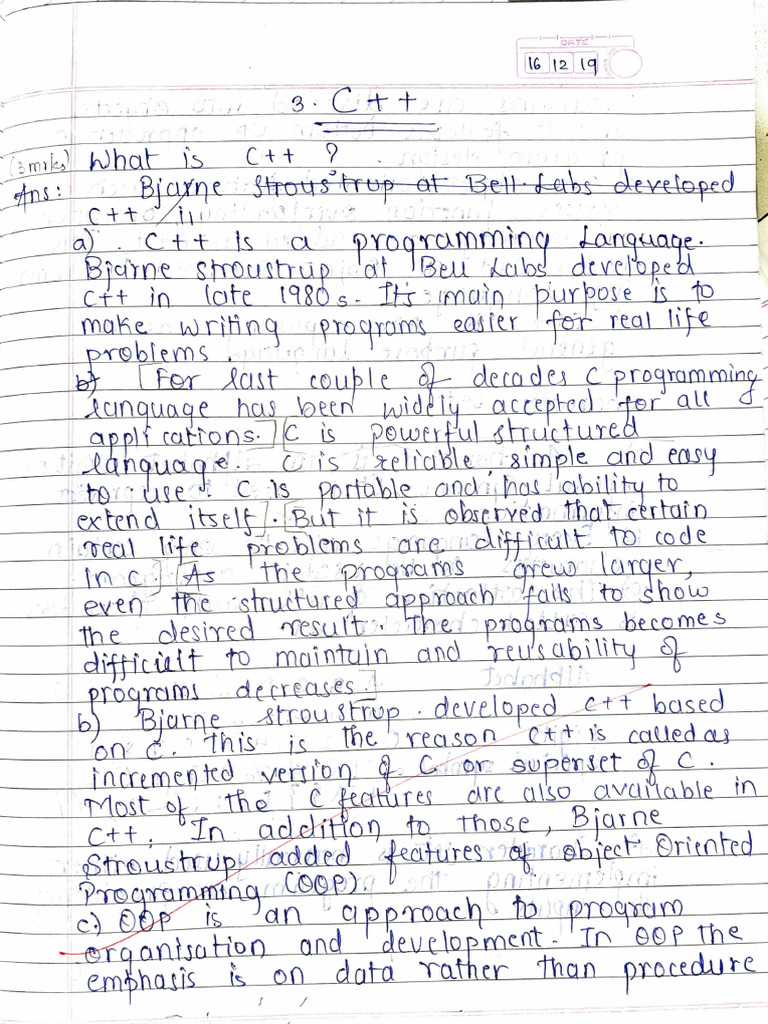 DATE
16 12 19
3. C++
(3 mrks) What is C++ ?
Ans: Bjarne Stroustrup at Bell Labs developed
C++ in
a). C++ is a programming Language.
Bjarne Stroustrup at Bell Labs developed
C++ in late 1980s. It's main purpose is to
make writing programs easier for real life
problems.
b) [For last couple of decades C programming
language has been widely accepted for all
applications.] [C is powerful structured
language. C is reliable, simple and easy
to use. C is portable and has ability to
extend itself]. [But it is observed that certain
real life problems are difficult to code
in C.] [As the programs grew larger,
even the structured approach fails to show
the desired result. The programs becomes
difficult to maintain and reusability of
programs decreases.]
b) Bjarne Stroustrup developed C++ based
on C. This is the reason C++ is called as
incremented version of C or superset of C.
Most of the C features are also available in
C++. In addition to those, Bjarne
Stroustrup added features of Object Oriented
Programming (OOP).
c.) OOP is an approach to program
organisation and development. In OOP the
emphasis is on data rather than procedure